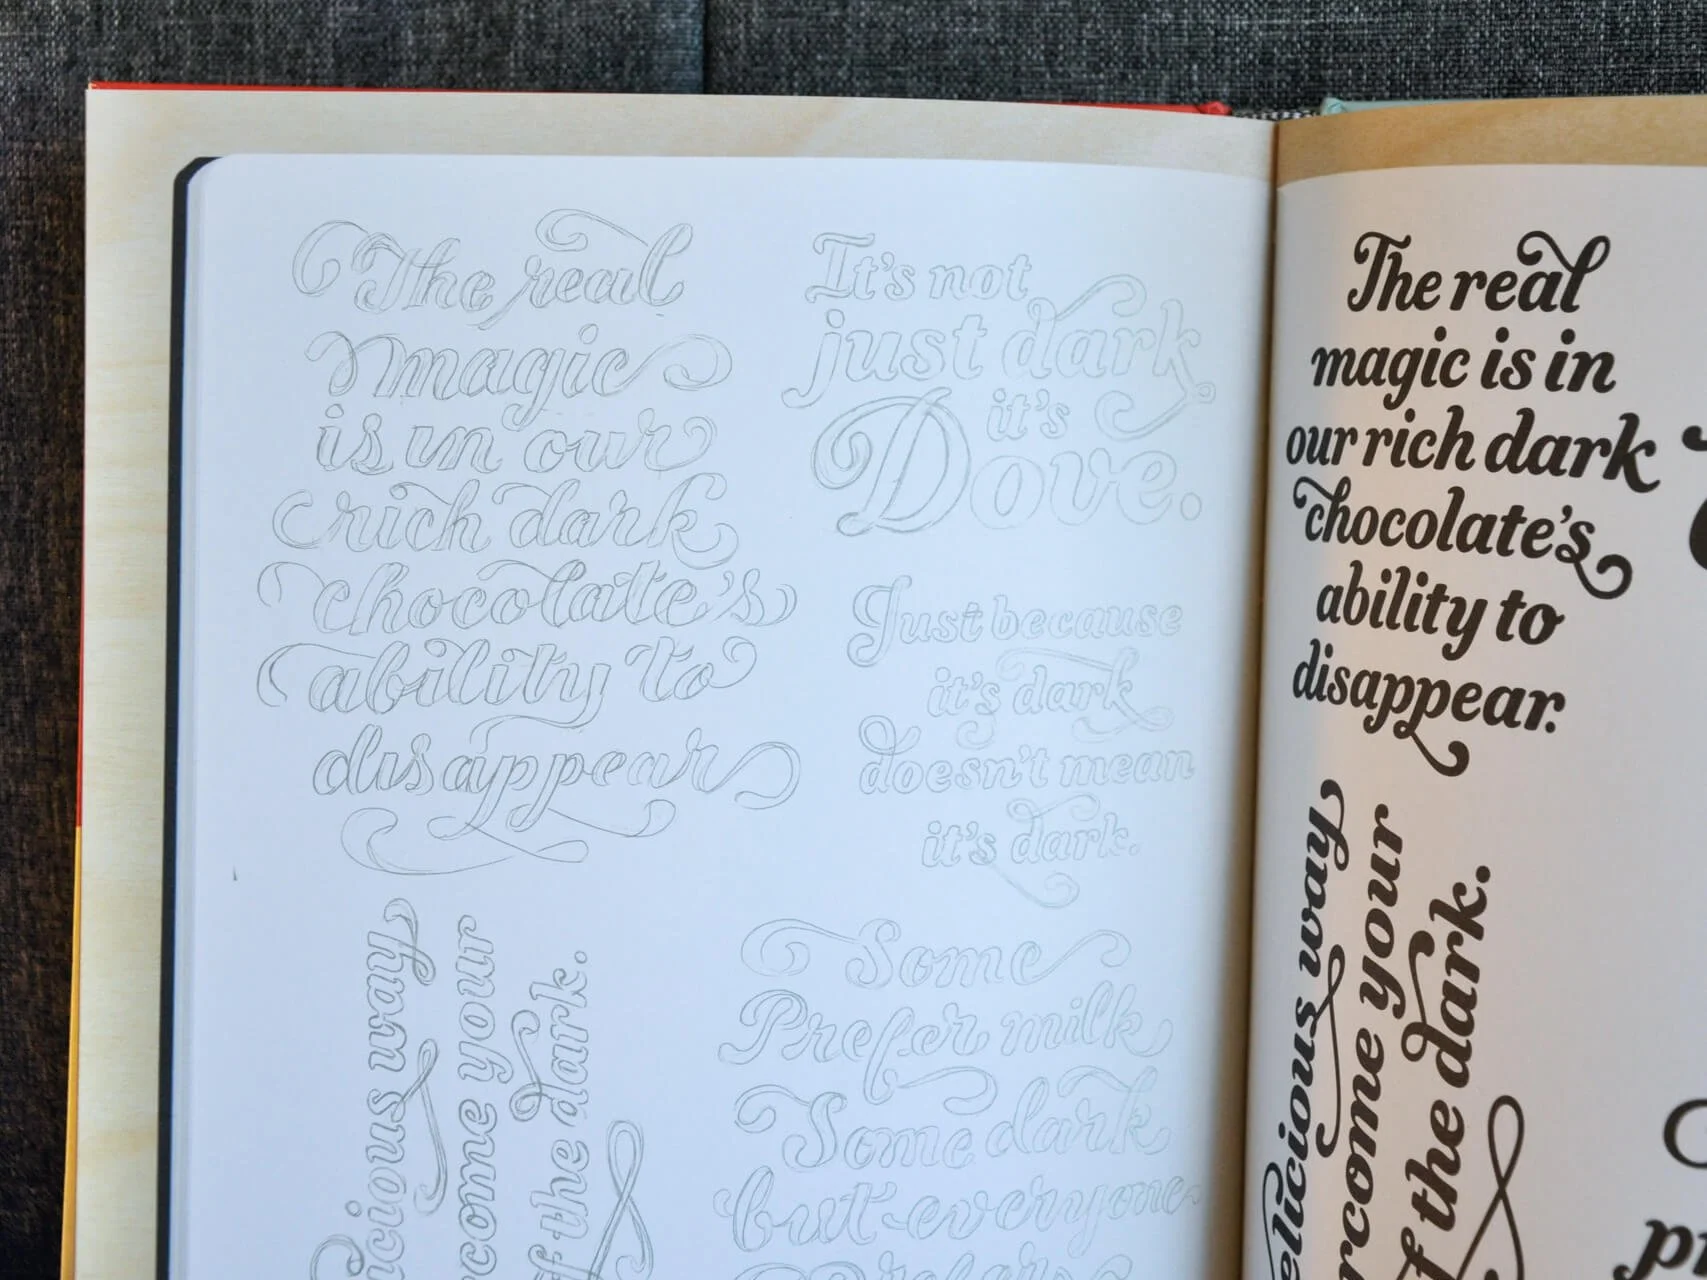 The real
magic
is in our
rich dark
chocolate's
ability to
disappear
It's not
just dark
it's
Dove.
Just because
it's dark
doesn't mean
it's dark.
way
your
the dark.
Some
Prefer milk
Some dark
but everyone
The real
magic is in
our rich dark
chocolate's
ability to
disappear.
way
your
the dark.